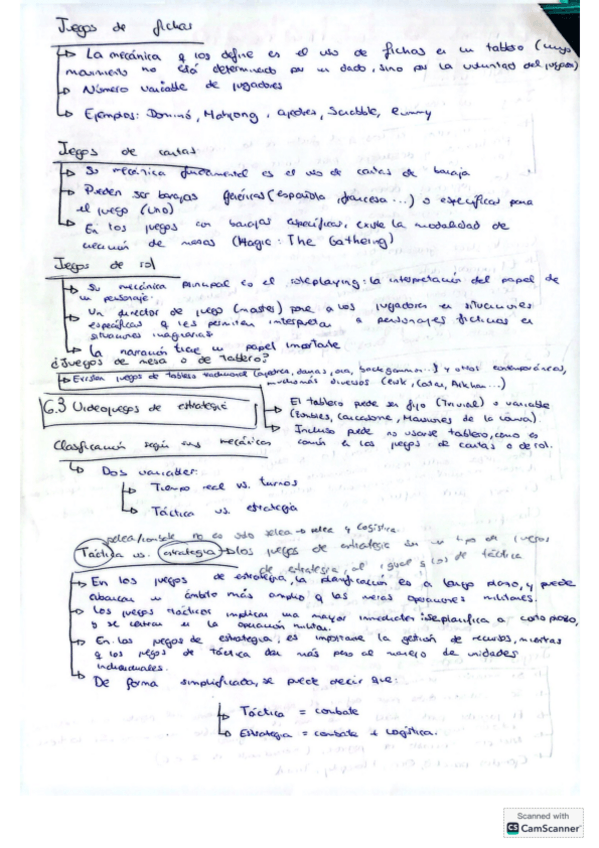 Juegos de fichas
La mecánica q los define es el uso de fichas en un tablero (cuyo
movimiento no está determinado por un dado, sino por la voluntad del jugador)
Número variable de jugadores
Ejemplos: Dominó, Mahjong, ajedrez, Scrabble, Rummy
Juegos de cartas
Su mecánica fundamental es el uso de cartas de baraja
Pueden ser barajas genéricas (española, francesa...) o específicas para
el juego (Uno)
En los juegos con barajas específicas, existe la modalidad de
creación de mazos (Magic: The Gathering)
Juegos de rol
Su mecánica principal es el roleplaying: la interpretación del papel de
un personaje.
Un director de juego (master) pone a los jugadores en situaciones
específicas q les permitan interpretar a personajes ficticios en
situaciones imaginarias
La narración tiene un papel importante
¿Juegos de mesa o de tablero?
Existen juegos de tablero tradicional (ajedrez, damas, oca, backgammon...) y otros contemporáneos,
muchos más diversos (Catan, Arkham...)
6.3 Videojuegos de estrategia
El tablero puede ser fijo (Trivial) o variable
(Zombies, Carcassone, Mansiones de la locura).
Incluso puede no usarse tablero, como es
común en los juegos de cartas o de rol.
Clasificación según sus mecánicas
Dos variables:
Tiempo real vs. turnos
Táctica vs. estrategia
pelea/combate no es solo pelea → pelea y logística
Táctica vs. estrategia → los juegos de estrategia son un tipo de juegos
de estrategia, al igual q los de táctica
En los juegos de estrategia, la planificación es a largo plazo, y puede
abarcar un ámbito más amplio q las meras operaciones militares.
Los juegos tácticos implican una mayor inmediatez: se planifica a corto plazo,
o se centran en la operación militar.
En los juegos de estrategia, es importante la gestión de recursos, mientras
q los juegos de táctica dan más peso al manejo de unidades
individuales.
De forma simplificada, se puede decir que:
Táctica = combate
Estrategia = combate + logística.
Scanned with
CS CamScanner